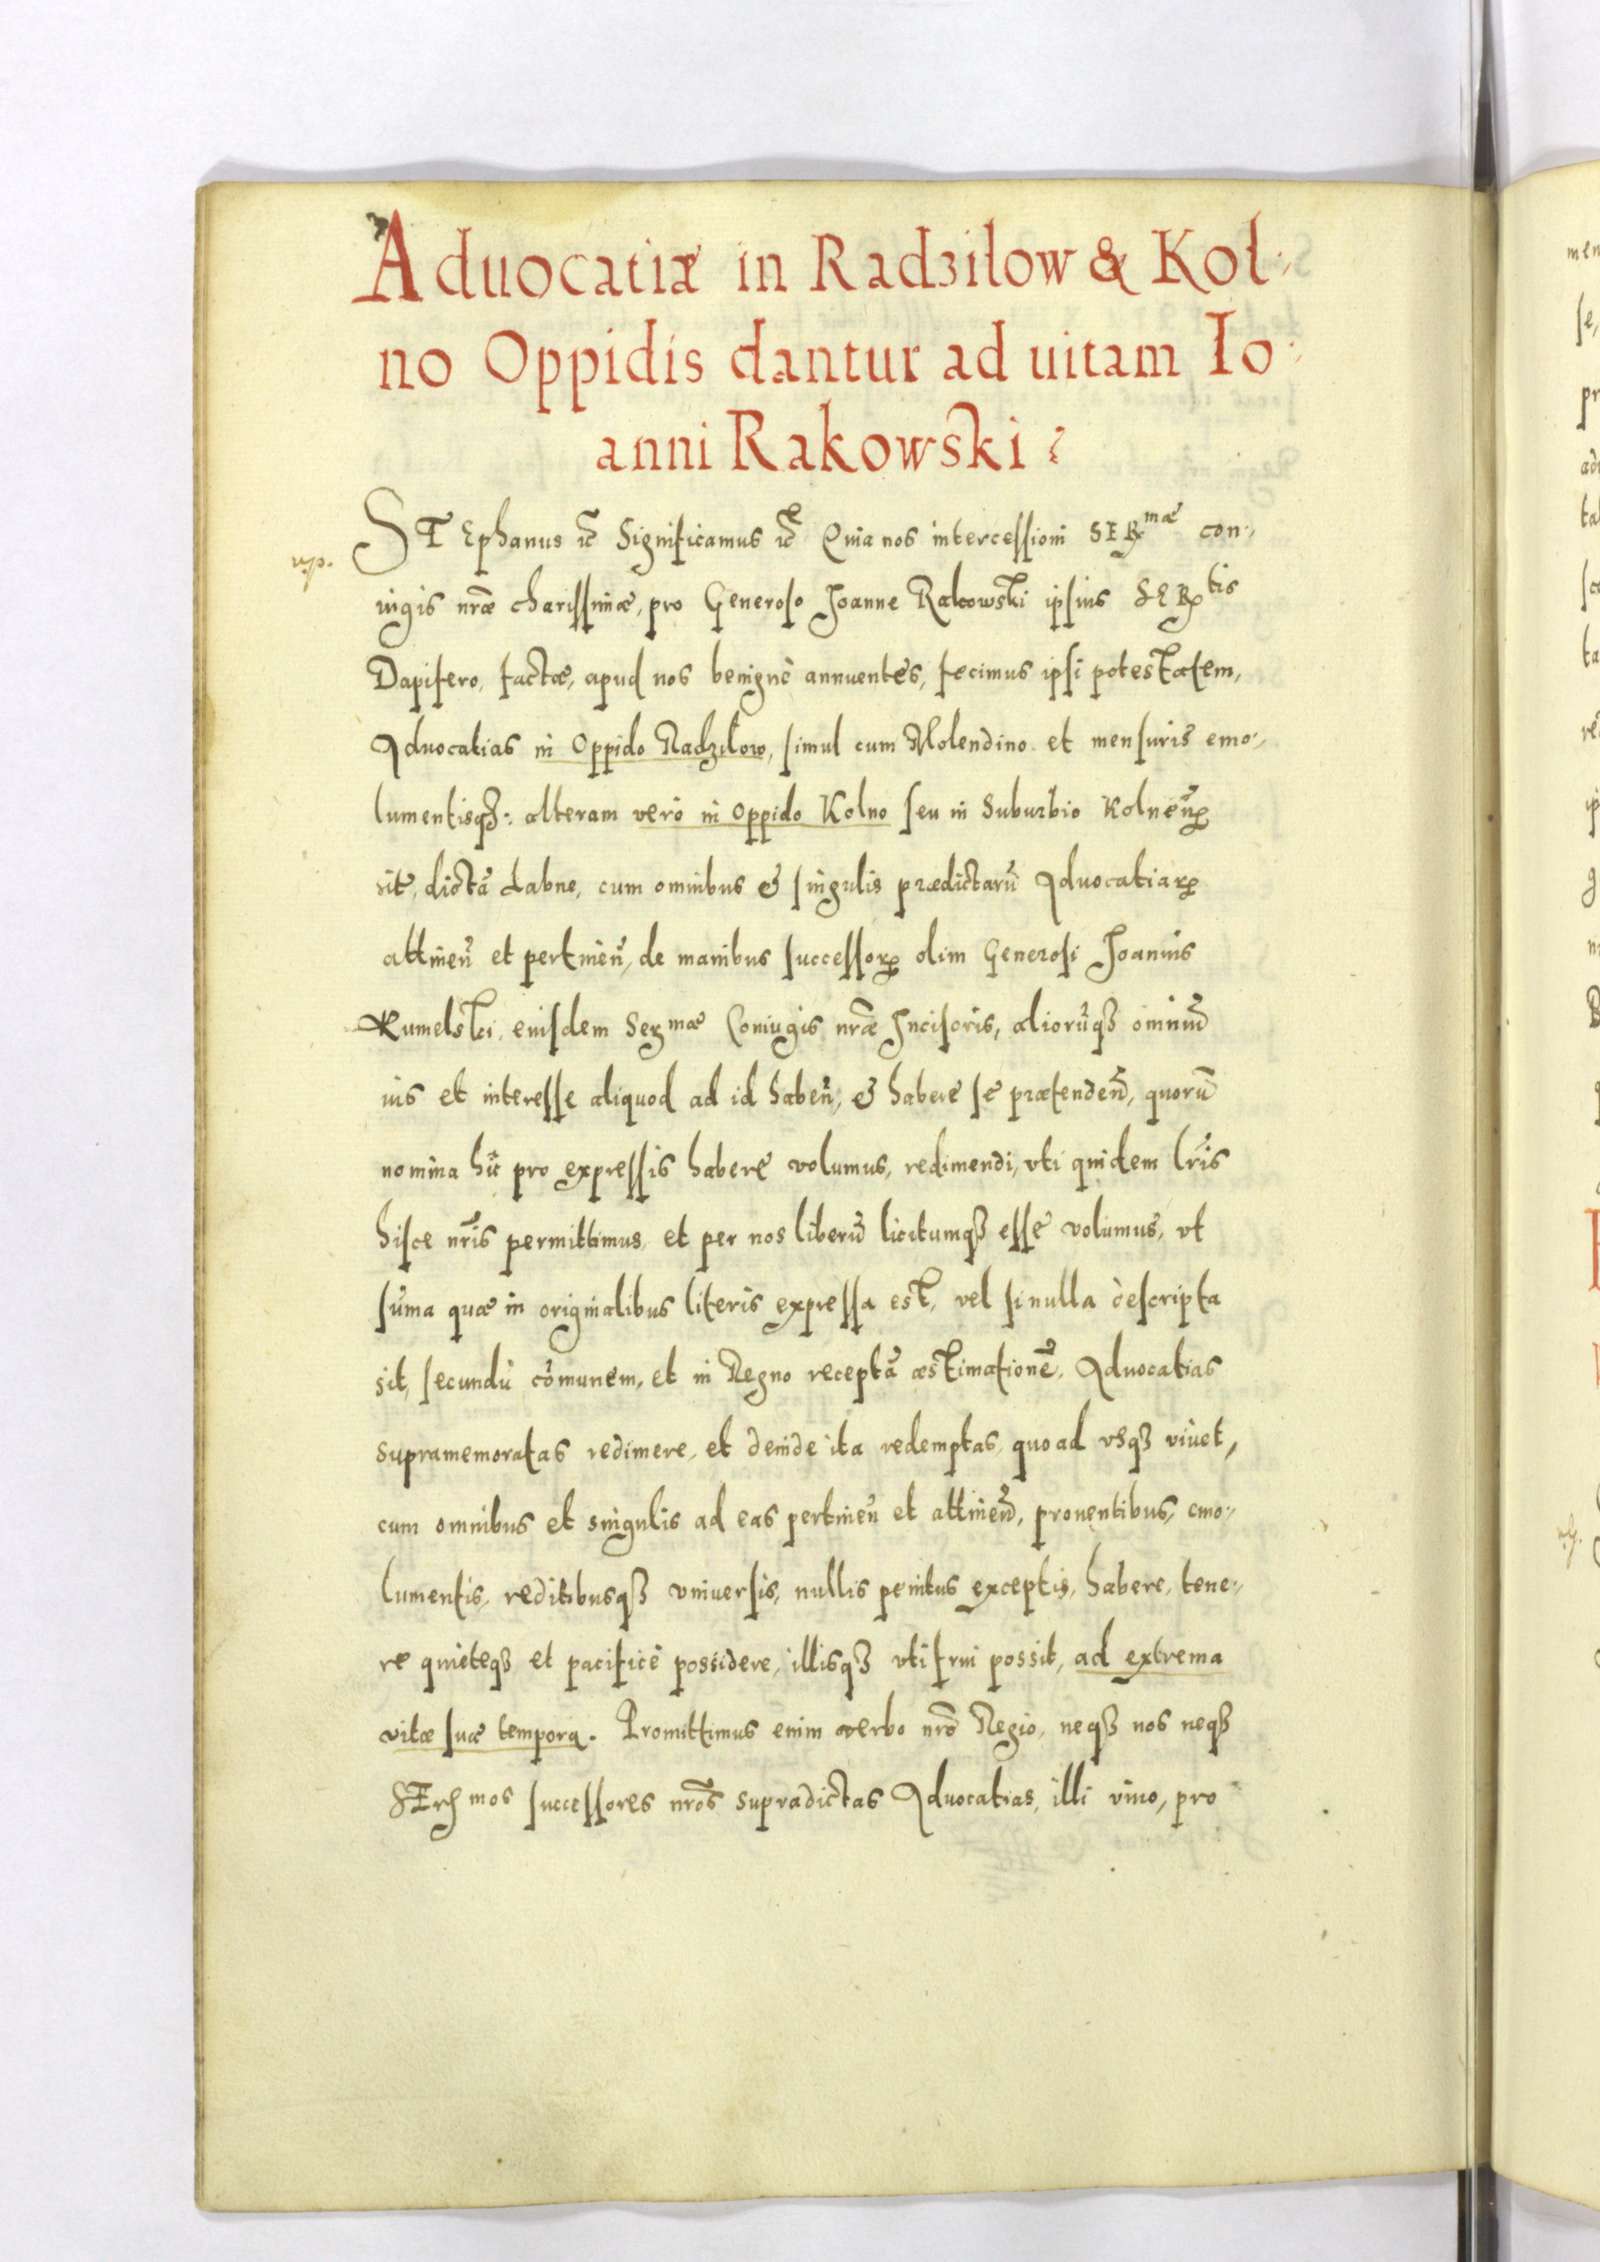 Aduocatiæ in Radziłow & Koł-
no Oppidis dantur ad uitam Io-
anni Rakowski
STEphanus etc̃ Significamus etc̃ Quia nos intercessioni SERmæ con-
iugis nr̃æ charissimæ, pro Generoso Joanne Rakowski ipsius SERtis
Dapifero, factæ, apud nos benignè annuentes, fecimus ipsi potestatem,
Aduocatias in Oppido Radziłow, simul cum Molendino et mensuris emo-
lumentisqꝫ: alteram verò in Oppido Kolno seu in Suburbio Kolnen̄
sit, dictā Łabne, cum omnibus & singulis prædictarū Aduocatiarꝝ
attinen̄ et pertinen̄, de manibus successorꝝ olim Generosi Joannis
Kumelski, eiusdem Sermæ Coniugis nr̃æ Incisoris, aliorūqꝫ omniū
ius et interesse aliquod ad id haben̄, & habere se prætenden̄, quorū
nomina hic pro expressis habere volumus, redimendi, vti quidem lr̃is
hisce nr̃is permittimus, et per nos liberū licitumqꝫ esse volumus, vt
sum̄a quæ in originalibus literis expressa est, vel si nulla descripta
sit, secundū com̄unem, et in Regno receptā æstimationē, Aduocatias
supramemoratas redimere, et deinde ita redemptas, quoad vsqꝫ viuet,
cum omnibus et singulis ad eas pertinen̄ et attinen̄, prouentibus, emo-
lumentis, reditibusqꝫ vniuersis, nullis penitus exceptis, habere, tene-
re quieteqꝫ et pacificè possidere, illisqꝫ vti frui possit, ad extrema
vitæ suæ tempora. Promittimus enim verbo nr̃o Regio, neqꝫ nos neqꝫ
SERmos successores nr̃os supradictas Aduocatias, illi viuo, pro